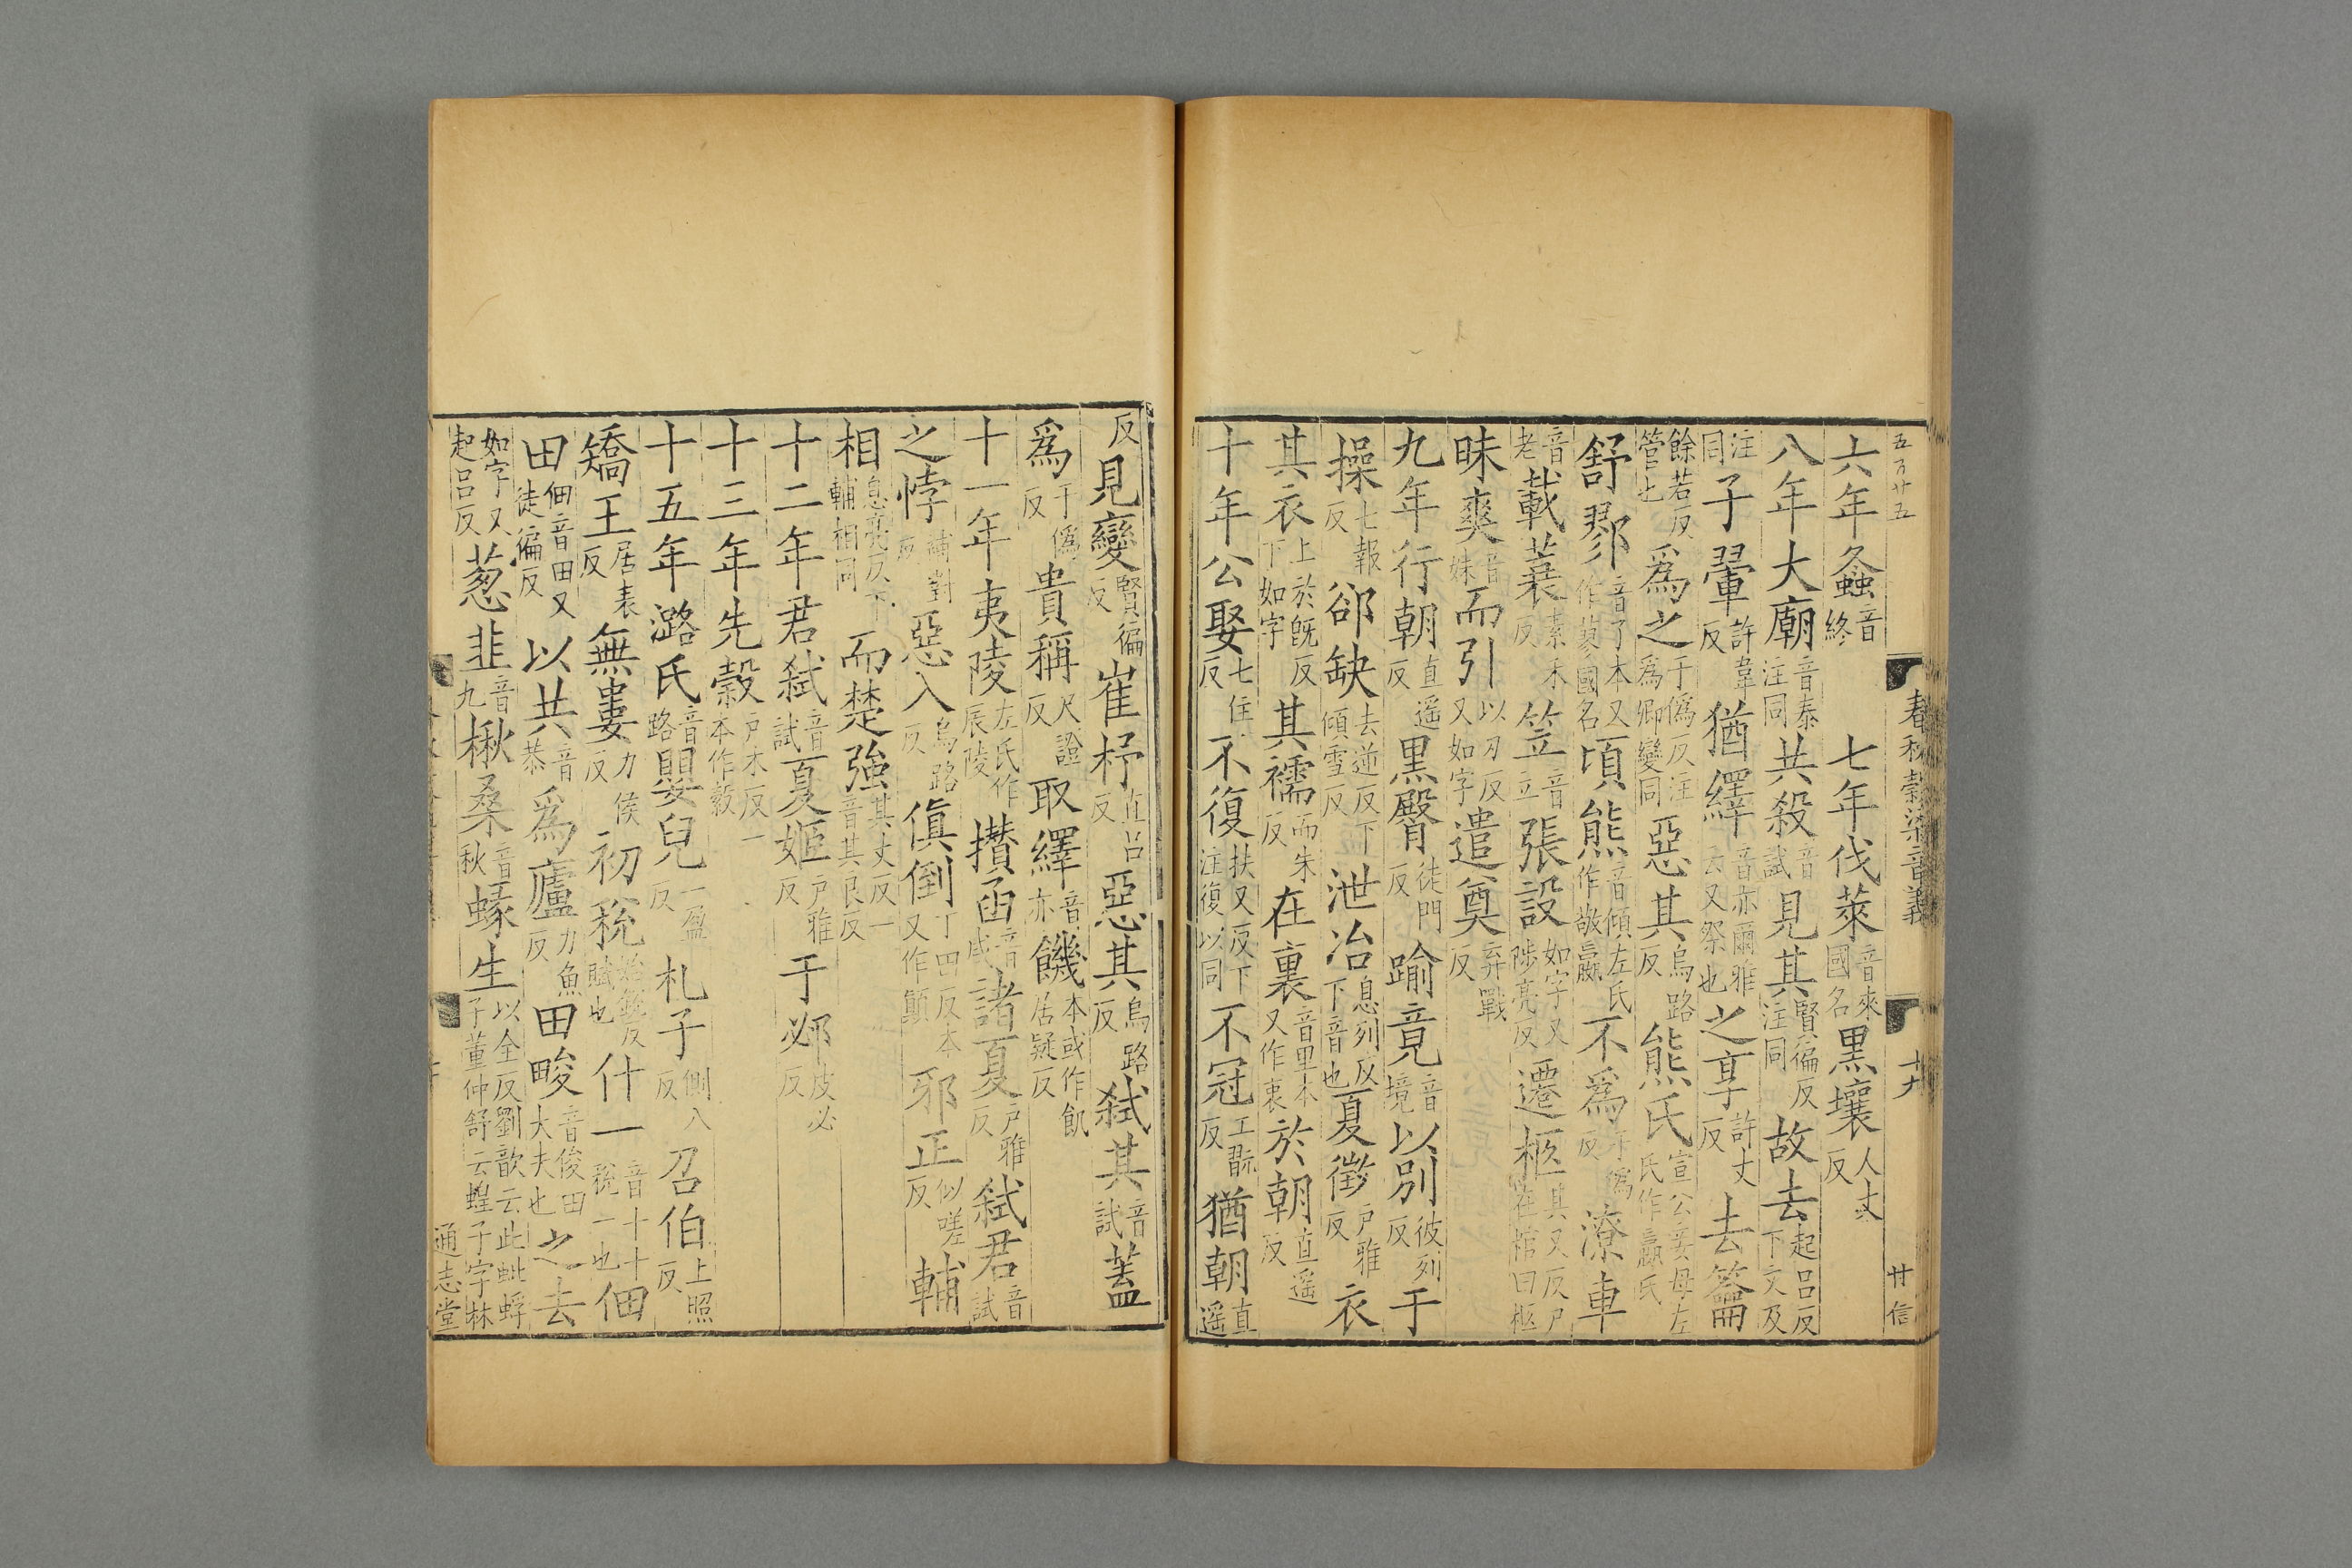 五百廿五 春秋穀梁音義 十九 廿信
六年螽音終 七年伐萊音來國名黑壤人丈反
八年大廟音泰注同共殺音試見其賢徧反注同故去起呂反下文及
注同子翬許韋反猶繹音亦爾雅云又祭也之享許丈反去籥
餘若反管也爲之于僞反注爲卿變同惡其烏路反熊氏宣公妾母左氏作嬴氏
舒鄝音了本又作蓼國名頃熊音傾左氏作敬嬴不爲于僞反潦車
音老載蓑素禾反笠音立張設如字又陟亮反遷柩其又反尸在棺曰柩
昧爽音妹而引以刃反又如字遣奠弃戰反
九年行朝直遥反黑臀徒門反踰竟音境以別彼列反于
操七報反郤缺去逆反下傾雪反泄冶息列反下音也夏徵戶雅反衣
其衣上於旣反下如字其襦而朱反在裏音里本又作衷於朝直遥反
十年公娶七住反不復扶又反下注復以同不冠工翫反猶朝直遥
反見變賢徧反崔杼直呂反惡其烏路反弑其音試蓋
爲于僞反貴稱尺證反取繹音亦饑本或作飢居疑反
十一年夷陵左氏作辰陵攢函音咸諸夏戶雅反弑君音試
之悖補對反惡入烏路反傎倒丁田反本又作顚邪正似嗟反輔
相息亮反下輔相同而楚強其丈反一音其良反
十二年君弑音試夏姬戶雅反于邲皮必反
十三年先縠戶木反一本作穀
十五年潞氏音路嬰兒一盈反札子側入反召伯上照反
矯王居表反無婁力侯反初稅始銳反賦也什一音十十稅一也佃
田佃音田又徒徧反以共音恭爲廬力魚反田畯音俊田大夫也之去
如字又起呂反葱韭音九楸桑音秋蝝生以全反劉歆云此蚍蜉子董仲舒云蝗子字林
通志堂